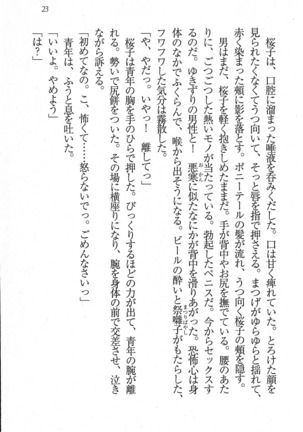 23
桜子は、口腔に溜まった唾液を呑みくだした。口は甘く痺れていた。とろけた顔を
見られたくなくてうつ向いて、そっと唇を指で押さえる。まつげがゆらゆらと揺れて、
赤く染まった頬に影を落とす。ポニーテールの髪が流れ、うつ向く桜子の頬を隠す。
男はまだ、桜子を軽く抱きしめたままだ。手が背中やお尻を撫でている。腰のあた
りに、ごつごつした熱いモノが当たっている。勃起したペニスだ。今からセックスす
るのだ。ゆきずりの男性と！　悪寒に似たなにかが背中を滑りあがった。恐怖心は身
体のなかでふくらんで、喉から出そうになる。ビールの酔いと祭囃子がもたらした、
フワフワした気分は霧散した。
「や、やだっ。いやっ！　離してっ」
桜子は青年の胸を手のひらで押した。びっくりするほどの力が出て、青年の腕が離
れる。勢いで尻餅をついた。その場に横座りになり、腕を身体の前で交差させ、泣き
ながら訴える。
「初めてなの。こ、怖くて……怒らないでっ。ごめんなさいっ」
青年は、ふうと息を吐いた。
「いいよ。やめよう」
「は？」